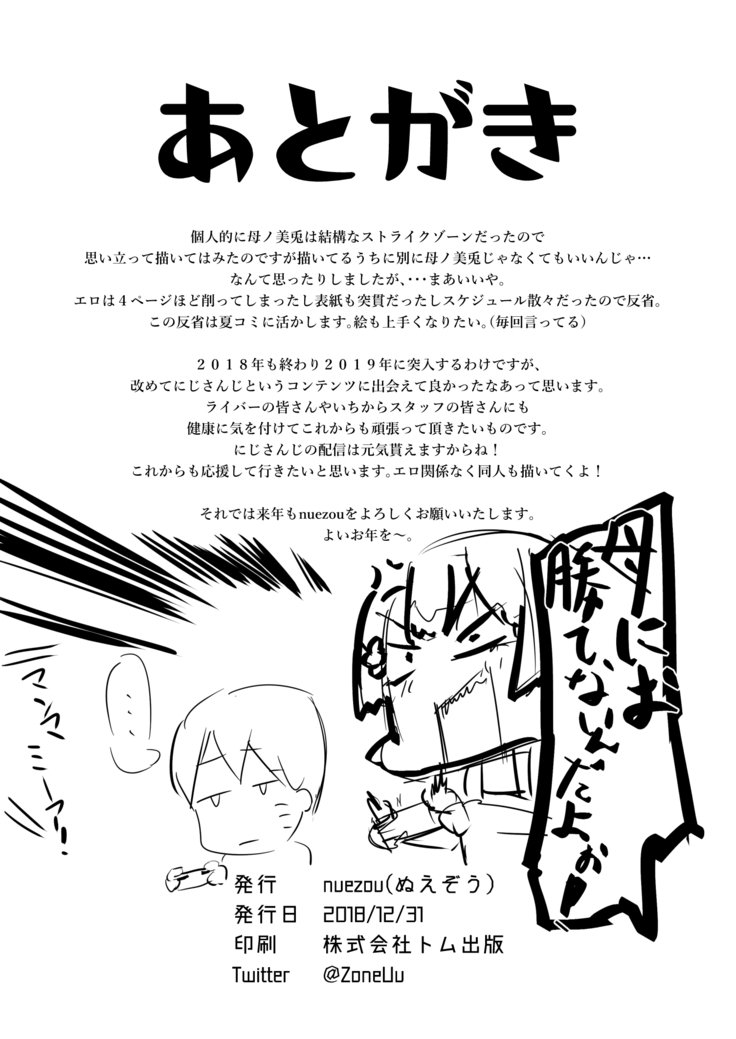 あとがき
個人的に母ノ美兎は結構なストライクゾーンだったので
思い立って描いてはみたのですが描いてるうちに別に母ノ美兎じゃなくてもいいんじゃ…
なんて思ったりしましたが、・・・まあいいや。
エロは４ページほど削ってしまったし表紙も突貫だったしスケジュール散々だったので反省。
この反省は夏コミに活かします。絵も上手くなりたい。（毎回言ってる）
２０１８年も終わり２０１９年に突入するわけですが、
改めてにじさんじというコンテンツに出会えて良かったなあって思います。
ライバーの皆さんやいちからスタッフの皆さんにも
健康に気を付けてこれからも頑張って頂きたいものです。
にじさんじの配信は元気貰えますからね！
これからも応援して行きたいと思います。エロ関係なく同人も描いてくよ！
それでは来年もnuezouをよろしくお願いいたします。
よいお年を〜。
母には
勝てないんだよぉ！
…
マンマ
ミーア！
発行 nuezou(ぬえぞう)
発行日 2018/12/31
印刷 株式会社トム出版
Twitter @ZoneUu